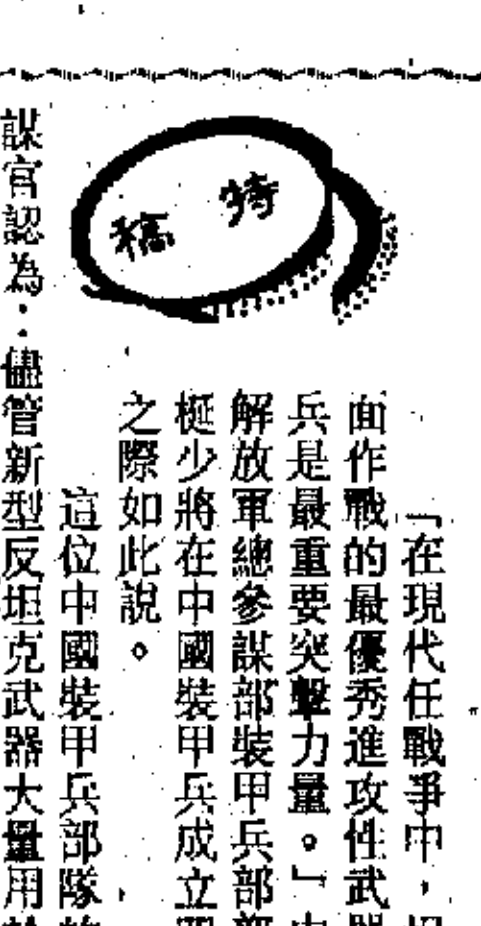 特稿
「在現代任戰爭中，坦
面作戰的最優秀進攻性武器
兵是最重要突擊力量。」
解放軍總參謀部裝甲兵部
梃少將在中國裝甲兵成立
之際如此說。
這位中國裝甲兵部隊
謀官認為：儘管新型反坦克武器大量用